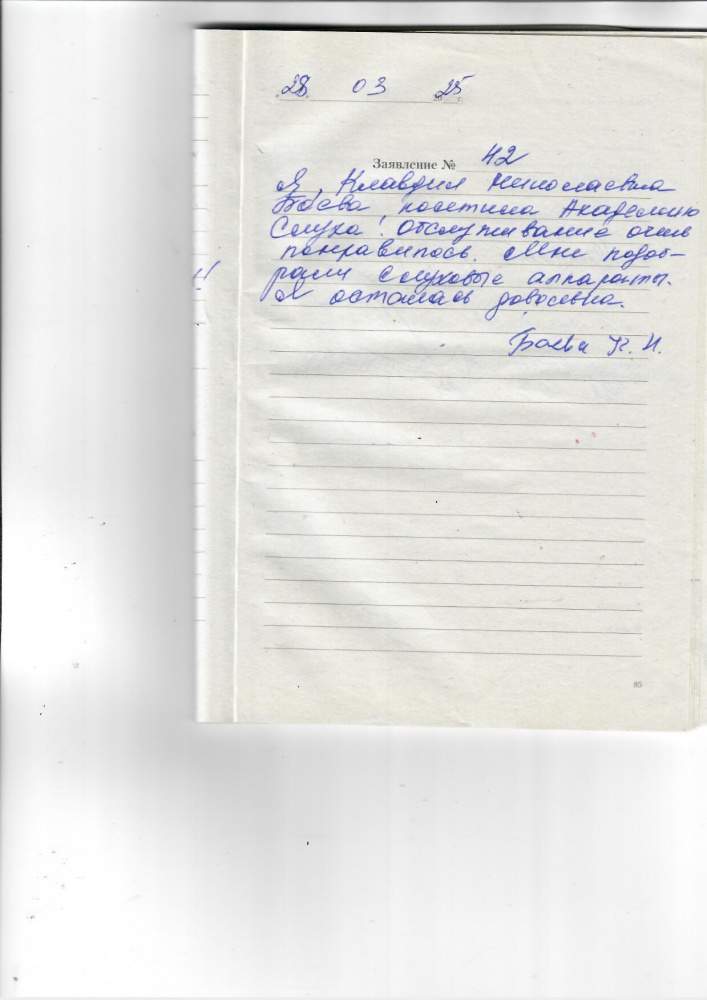 28 03 2025 г.
Заявление № 42
Я, Клавдия Николаевна
Боева, посетила Академию
Слуха! Обслуживание очень
понравилось. Мне подоб-
рали слуховые аппараты.
Я осталась довольна.
Боева К. Н.
85